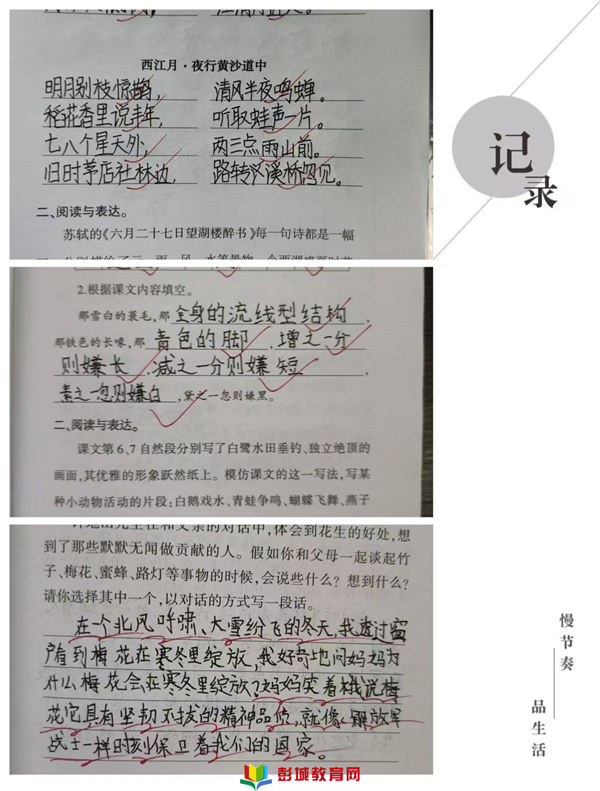 西江月·夜行黄沙道中
明月别枝惊鹊,清风半夜鸣蝉。
稻花香里说丰年,听取蛙声一片。
七八个星天外,两三点雨山前。
旧时茅店社林边,路转溪桥忽见。
二、阅读与表达。
苏轼的《六月二十七日望湖楼醉书》每一句诗都是一幅
2.根据课文内容填空。
那雪白的蓑毛,那全身的流线型结构,
那铁色的长喙,那青色的脚,增之一分
则嫌长,减之一分则嫌短,
素之一忽则嫌白,黛之一忽则嫌黑。
二、阅读与表达。
课文第6、7自然段分别写了白鹭水田垂钓、独立绝顶的
画面,其优雅的形象跃然纸上。模仿课文的这一写法,写某
种小动物活动的片段:白鹅戏水、青蛙争鸣、蝴蝶飞舞、燕子
许地山先生在和父亲的对话中,体会到花生的好处,想
到了那些默默无闻做贡献的人。假如你和父母一起谈起竹
子、梅花、蜜蜂、路灯等事物的时候,会说些什么?想到什么?
请你选择其中一个,以对话的方式写一段话。
在一个北风呼啸、大雪纷飞的冬天,我透过窗
户看到梅花在寒冬里绽放,我好奇地问妈妈为
什么梅花会在寒冬里绽放?妈妈笑着对我说梅
花它具有坚韧不拔的精神品质,就像解放军
战士一样时刻保卫着我们的国家。
记录
慢节奏
品生活
彭城教育网